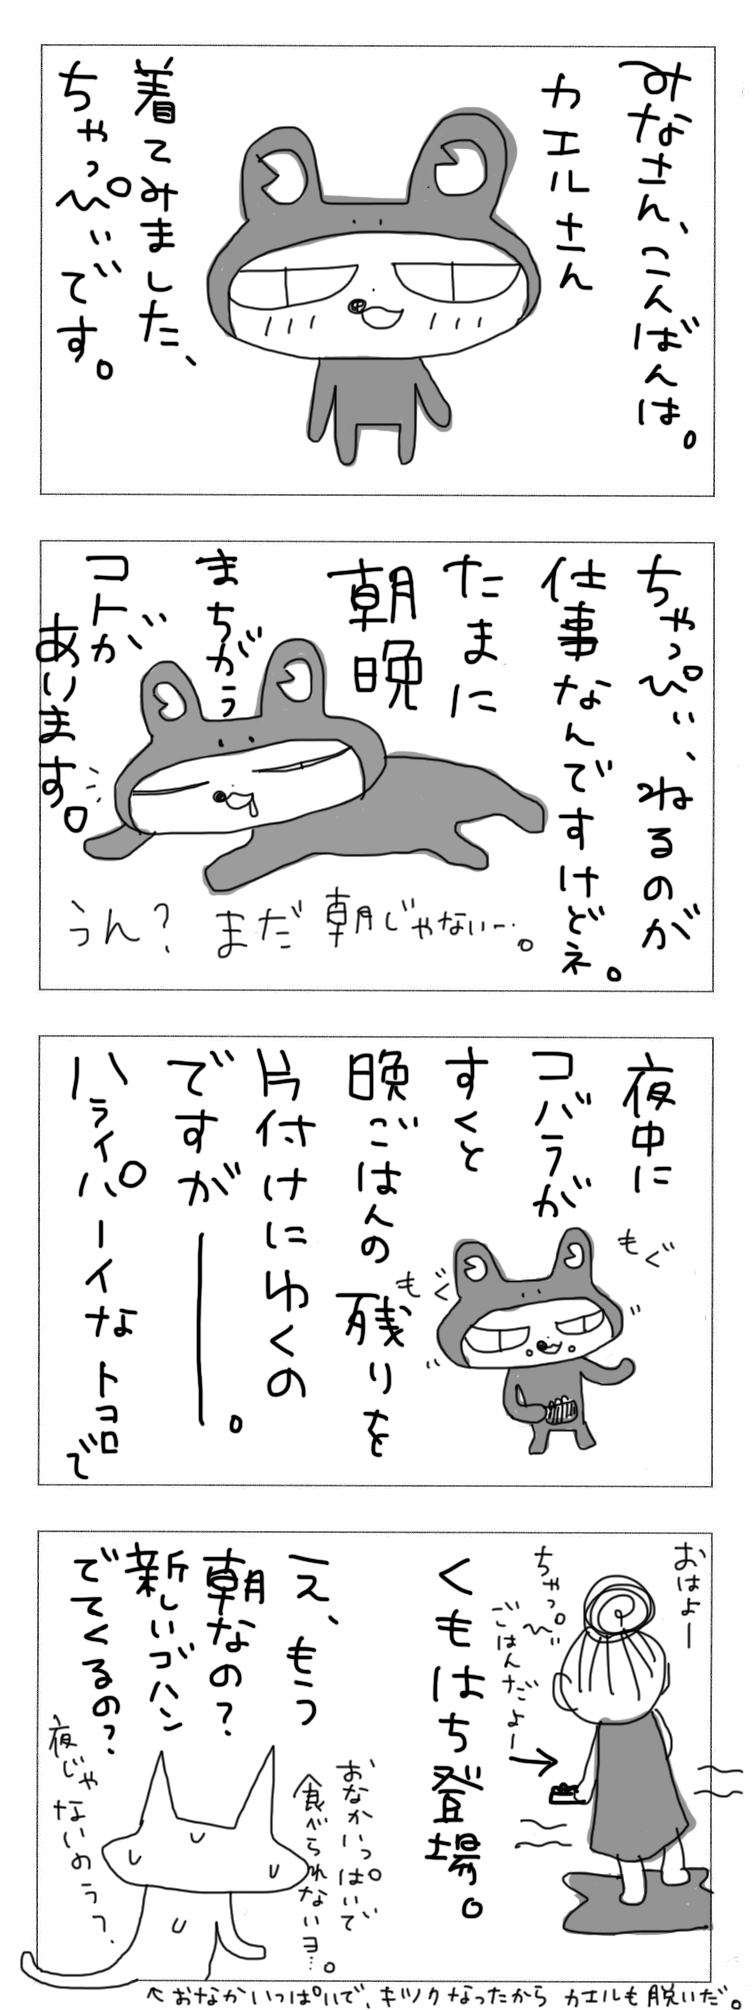 みなさん、こんばんは。
カエルさん
着てみました、
ちゃっぴぃです。
ちゃっぴぃ、ねるのが
仕事なんですけどネ。
たまに
朝晩
まちがう
コトが
あります。
うん？まだ朝じゃない…。
夜中に
コバラが
すくと
晩ごはんの残りを
片付けにゆくの
ですが――。
ハライパーイなトコロで
もぐ
もぐ
おはよー
ちゃっぴぃ
ごはんだよー
くもはち登場。
え、もう
朝なの？
新しいゴハン
でてくるの？
おなかいっぱいで
食べられないヨ…。
夜じゃ
ないのうっ、
←おなかいっぱいで、キツクなったから カエルも脱いだ。